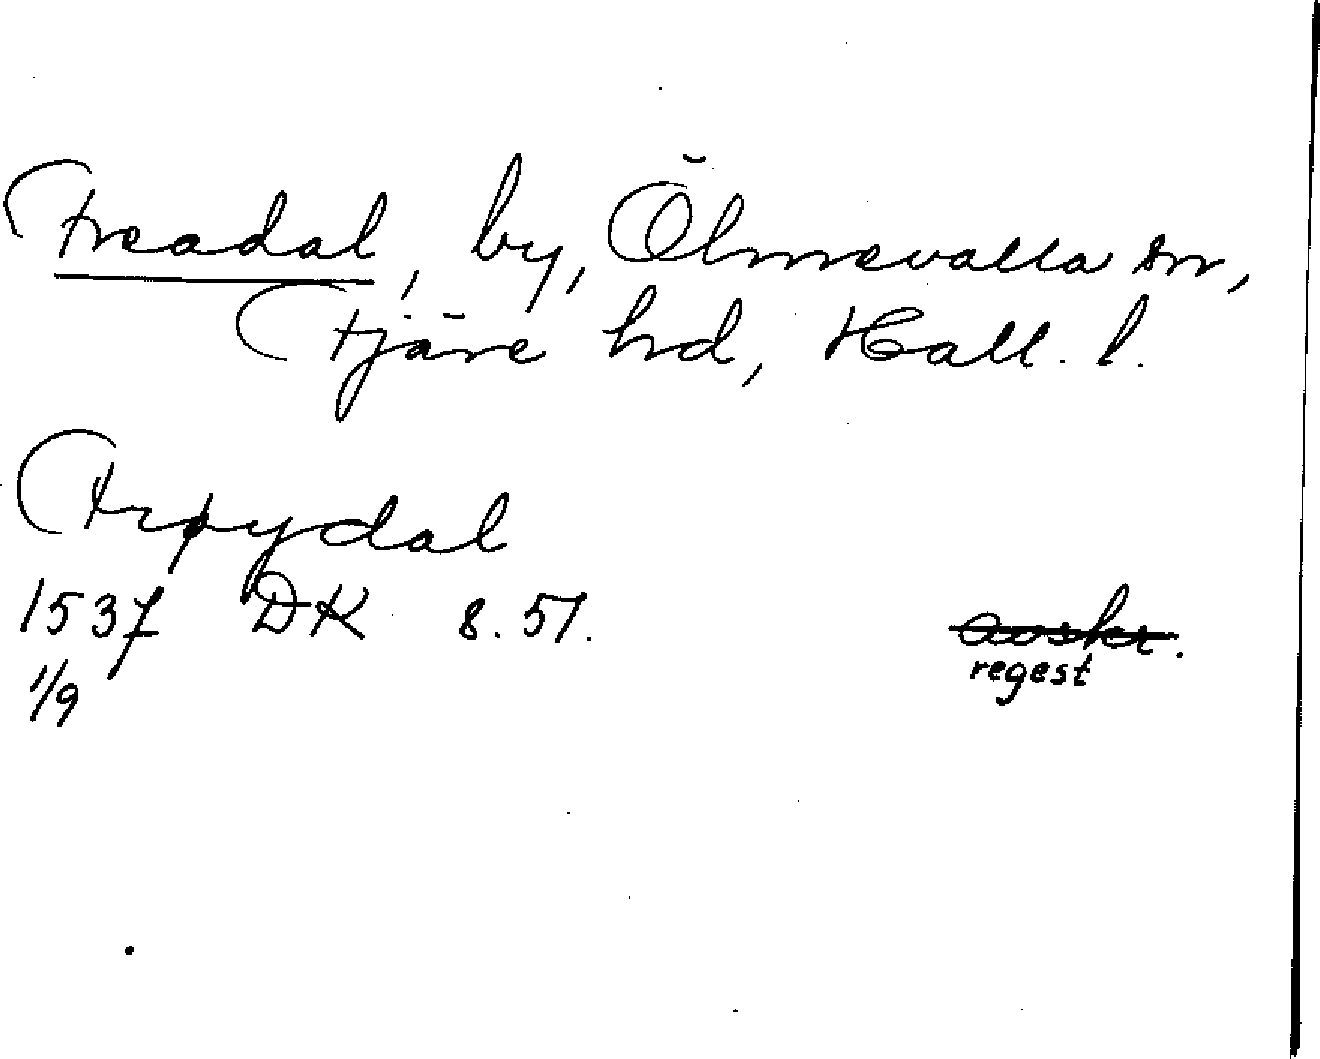 Freadal, by, Ölmevalla sn,
Fjäre hd, Hall. l.
Frøydal
1537 DK 8. 51.
avskr.
regest
1/9